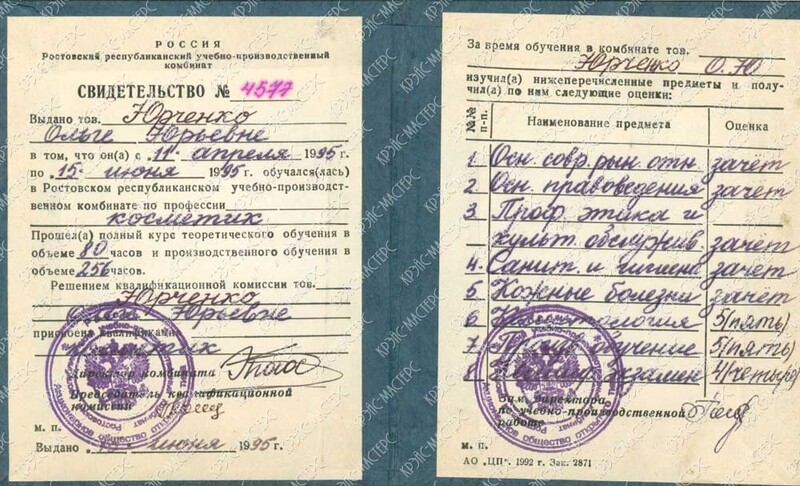 РОССИЯ
Ростовский республиканский учебно-производственный
комбинат
СВИДЕТЕЛЬСТВО № 4577
Выдано тов. Юрченко
Ольге Юрьевне
в том, что он(а) с „11“ апреля 1995 г.
по „15“ июня 1995 г. обучался(лась)
в Ростовском республиканском учебно-производст-
венном комбинате по профессии
косметик
Прошел(а) полный курс теоретического обучения в
объеме 80 часов и производственного обучения в
объеме 256 часов.
Решением квалификационной комиссии тов.
Юрченко
Ольге Юрьевне
присвоена квалификация
косметик
Директор комбината
Председатель квалификационной
комиссии
м. п.
Выдано июня 1995 г.
За время обучения в комбинате тов.
Юрченко О.Ю
изучил(а) нижеперечисленные предметы и полу-
чил(а) по ним следующие оценки:
№№ п-п. Наименование предмета Оценка
1. Осн. совр. рын. отн зачет
2. Осн. правоведения зачет
3. Проф. этика и
культ. обслужив. зачет
4. Санит. и гигиена зачет
5. Кожные болезни зачет
6 5(пять)
7 обучение 5(пять)
8 экзамен 4(четыре)
Зам. директора
по учебно-производственной
работе
м. п.
АО „ЦП“. 1992 г. Зак. 2871
КРЭЙС-МАСТЕРС